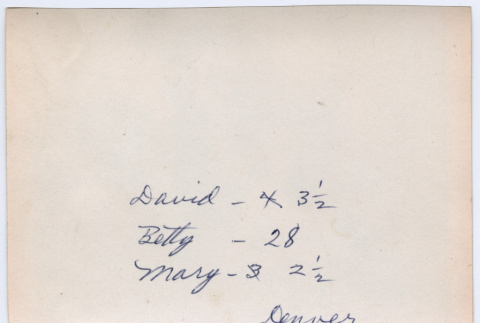 David - 4 3 1/2
Betty - 28
Mary - 3 2 1/2
Denver